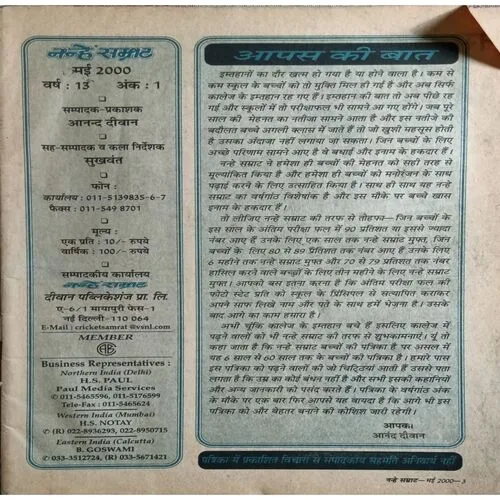 नन्हे सम्राट
मई 2000
वर्ष : 13 अंक : 1
सम्पादक-प्रकाशक
आनन्द दीवान
सह-सम्पादक व कला निर्देशक
सुखवंत
फोन :
कार्यालय : 011-5139835-6-7
फैक्स : 011-549 8701
मूल्य :
एक प्रति : 10/- रुपये
वार्षिक : 100/- रुपये
सम्पादकीय कार्यालय
नन्हे सम्राट
दीवान पब्लिकेशंज प्रा. लि.
ए-6/1 मायापुरी फेस-1
नई दिल्ली-110 064
E-Mail : cricketsamrat@vsnl.com
MEMBER
Business Representatives :
Northern India (Delhi)
H.S. PAUL
Paul Media Services
✆ 011-5465596, 011-5176599
Tele-Fax : 011-5465624
Western India (Mumbai)
H.S. NOTAY
✆ (R) 022-8936293, 022-8950715
Eastern India (Calcutta)
B. GOSWAMI
✆ 033-3512724, (R) 033-5671421
आपस की बात
इम्तहानों का दौर खत्म हो गया है या होने वाला है। कम से
कम स्कूल के बच्चों को तो मुक्ति मिल ही गई है और अब सिर्फ
कालेज के इम्तहान रह गए हैं। इम्तहान की बात तो अब पीछे रह
गई और स्कूलों में तो परीक्षाफल भी सामने आ गए होंगे। जब पूरे
साल की मेहनत का नतीजा सामने आता है और इस नतीजे की
बदौलत बच्चे अगली क्लास में जाते हैं तो जो खुशी महसूस होती
है उसका अंदाजा नहीं लगाया जा सकता। जिन बच्चों के लिए
अच्छे परिणाम सामने आए हैं वे बधाई और इनाम के हकदार हैं।
नन्हे सम्राट ने हमेशा ही बच्चों की मेहनत को सही तरह से
मूल्यांकित किया है और हमेशा ही बच्चों को मनोरंजन के साथ
पढ़ाई करने के लिए उत्साहित किया है। साथ ही साथ यह नन्हे
सम्राट का वर्षगांठ विशेषांक है और इस मौके पर बच्चे खास
इनाम के हकदार हैं।
तो लीजिए नन्हे सम्राट की तरफ से तोहफा—जिन बच्चों के
इस साल के अंतिम परीक्षा फल में 90 प्रतिशत या इससे ज्यादा
नंबर आए हैं उनके लिए एक साल तक नन्हे सम्राट मुफ्त, जिन
बच्चों के लिए 80 से 89 प्रतिशत तक नंबर आए हैं उनके लिए
6 महीने तक नन्हे सम्राट मुफ्त और 70 से 79 प्रतिशत तक नंबर
हासिल करने वाले बच्चों के लिए तीन महीने के लिए नन्हे सम्राट
मुफ्त। आपको बस इतना करना है कि अंतिम परीक्षा फल की
फोटो स्टेट प्रति को स्कूल के प्रिंसिपल से सत्यापित कराकर
अपने साफ लिखे नाम और पते के साथ हमें भेजना है। उसके
बाद आगे का काम हमारा है।
अभी चूंकि कालेज के इम्तहान बचे हैं इसलिए कालेज में
पढ़ने वालों को भी नन्हे सम्राट की तरफ से शुभकामनाएं। यूं तो
कहा जाता है कि नन्हे सम्राट बच्चों की पत्रिका है पर असल में
यह 6 साल से 60 साल तक के बच्चों की पत्रिका है। हमारे पास
इस पत्रिका को पढ़ने वालों की जो चिट्ठियां आती हैं उससे पता
लगता है कि उम्र का कोई बंधन नहीं है और सभी इसकी कहानियों
और अन्य जानकारी को पसंद करते हैं। पत्रिका के वर्षगांठ अंक
के मौके पर एक बार फिर आपसे यह वायदा है कि आगे भी इस
पत्रिका को और बेहतर बनाने की कोशिश जारी रहेगी।
आपका
आनंद दीवान
पत्रिका में प्रकाशित विचारों से संपादकीय सहमति अनिवार्य नहीं
नन्हे सम्राट—मई 2000—3